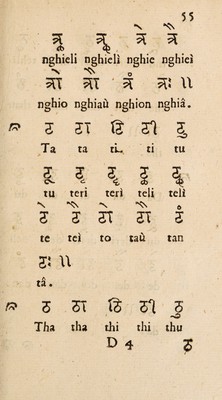 55
nghieli nghielì nghie nghieì
nghio nghiaù nghion nghiâ.
ट टा टि टी टु
Ta ta ti. ti tu
टू टृ टॄ टॢ टॣ
tu teri terì teli telì
टे टै टो टौ टं
te teì to taù tan
टः ॥
tâ.
ठ ठा ठि ठी ठु
Tha tha thi thi thu
D 4 ठू